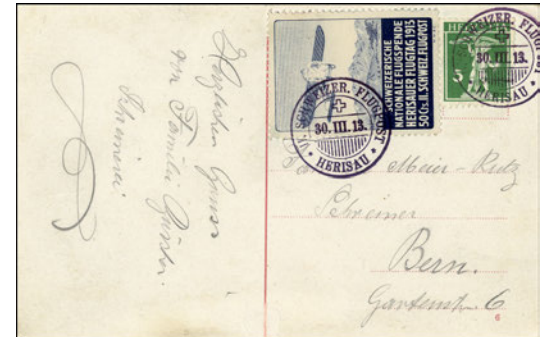 Herzlichen Gruss
von Familie
SCHWEIZERISCHE
NATIONALE FLUGSPENDE
HERISAUER FLUGTAG 1913
50 Cts. II. SCHWEIZ. FLUGPOST
HE
5
SCHWEIZER. FLUGPOST
30. III. 13.
HERISAU
VI. SCHWEIZER. FLUGPOST
30. III. 13.
HERISAU
Meier-Rutz
Schreiner
Bern.
Gartenstr. 6
6